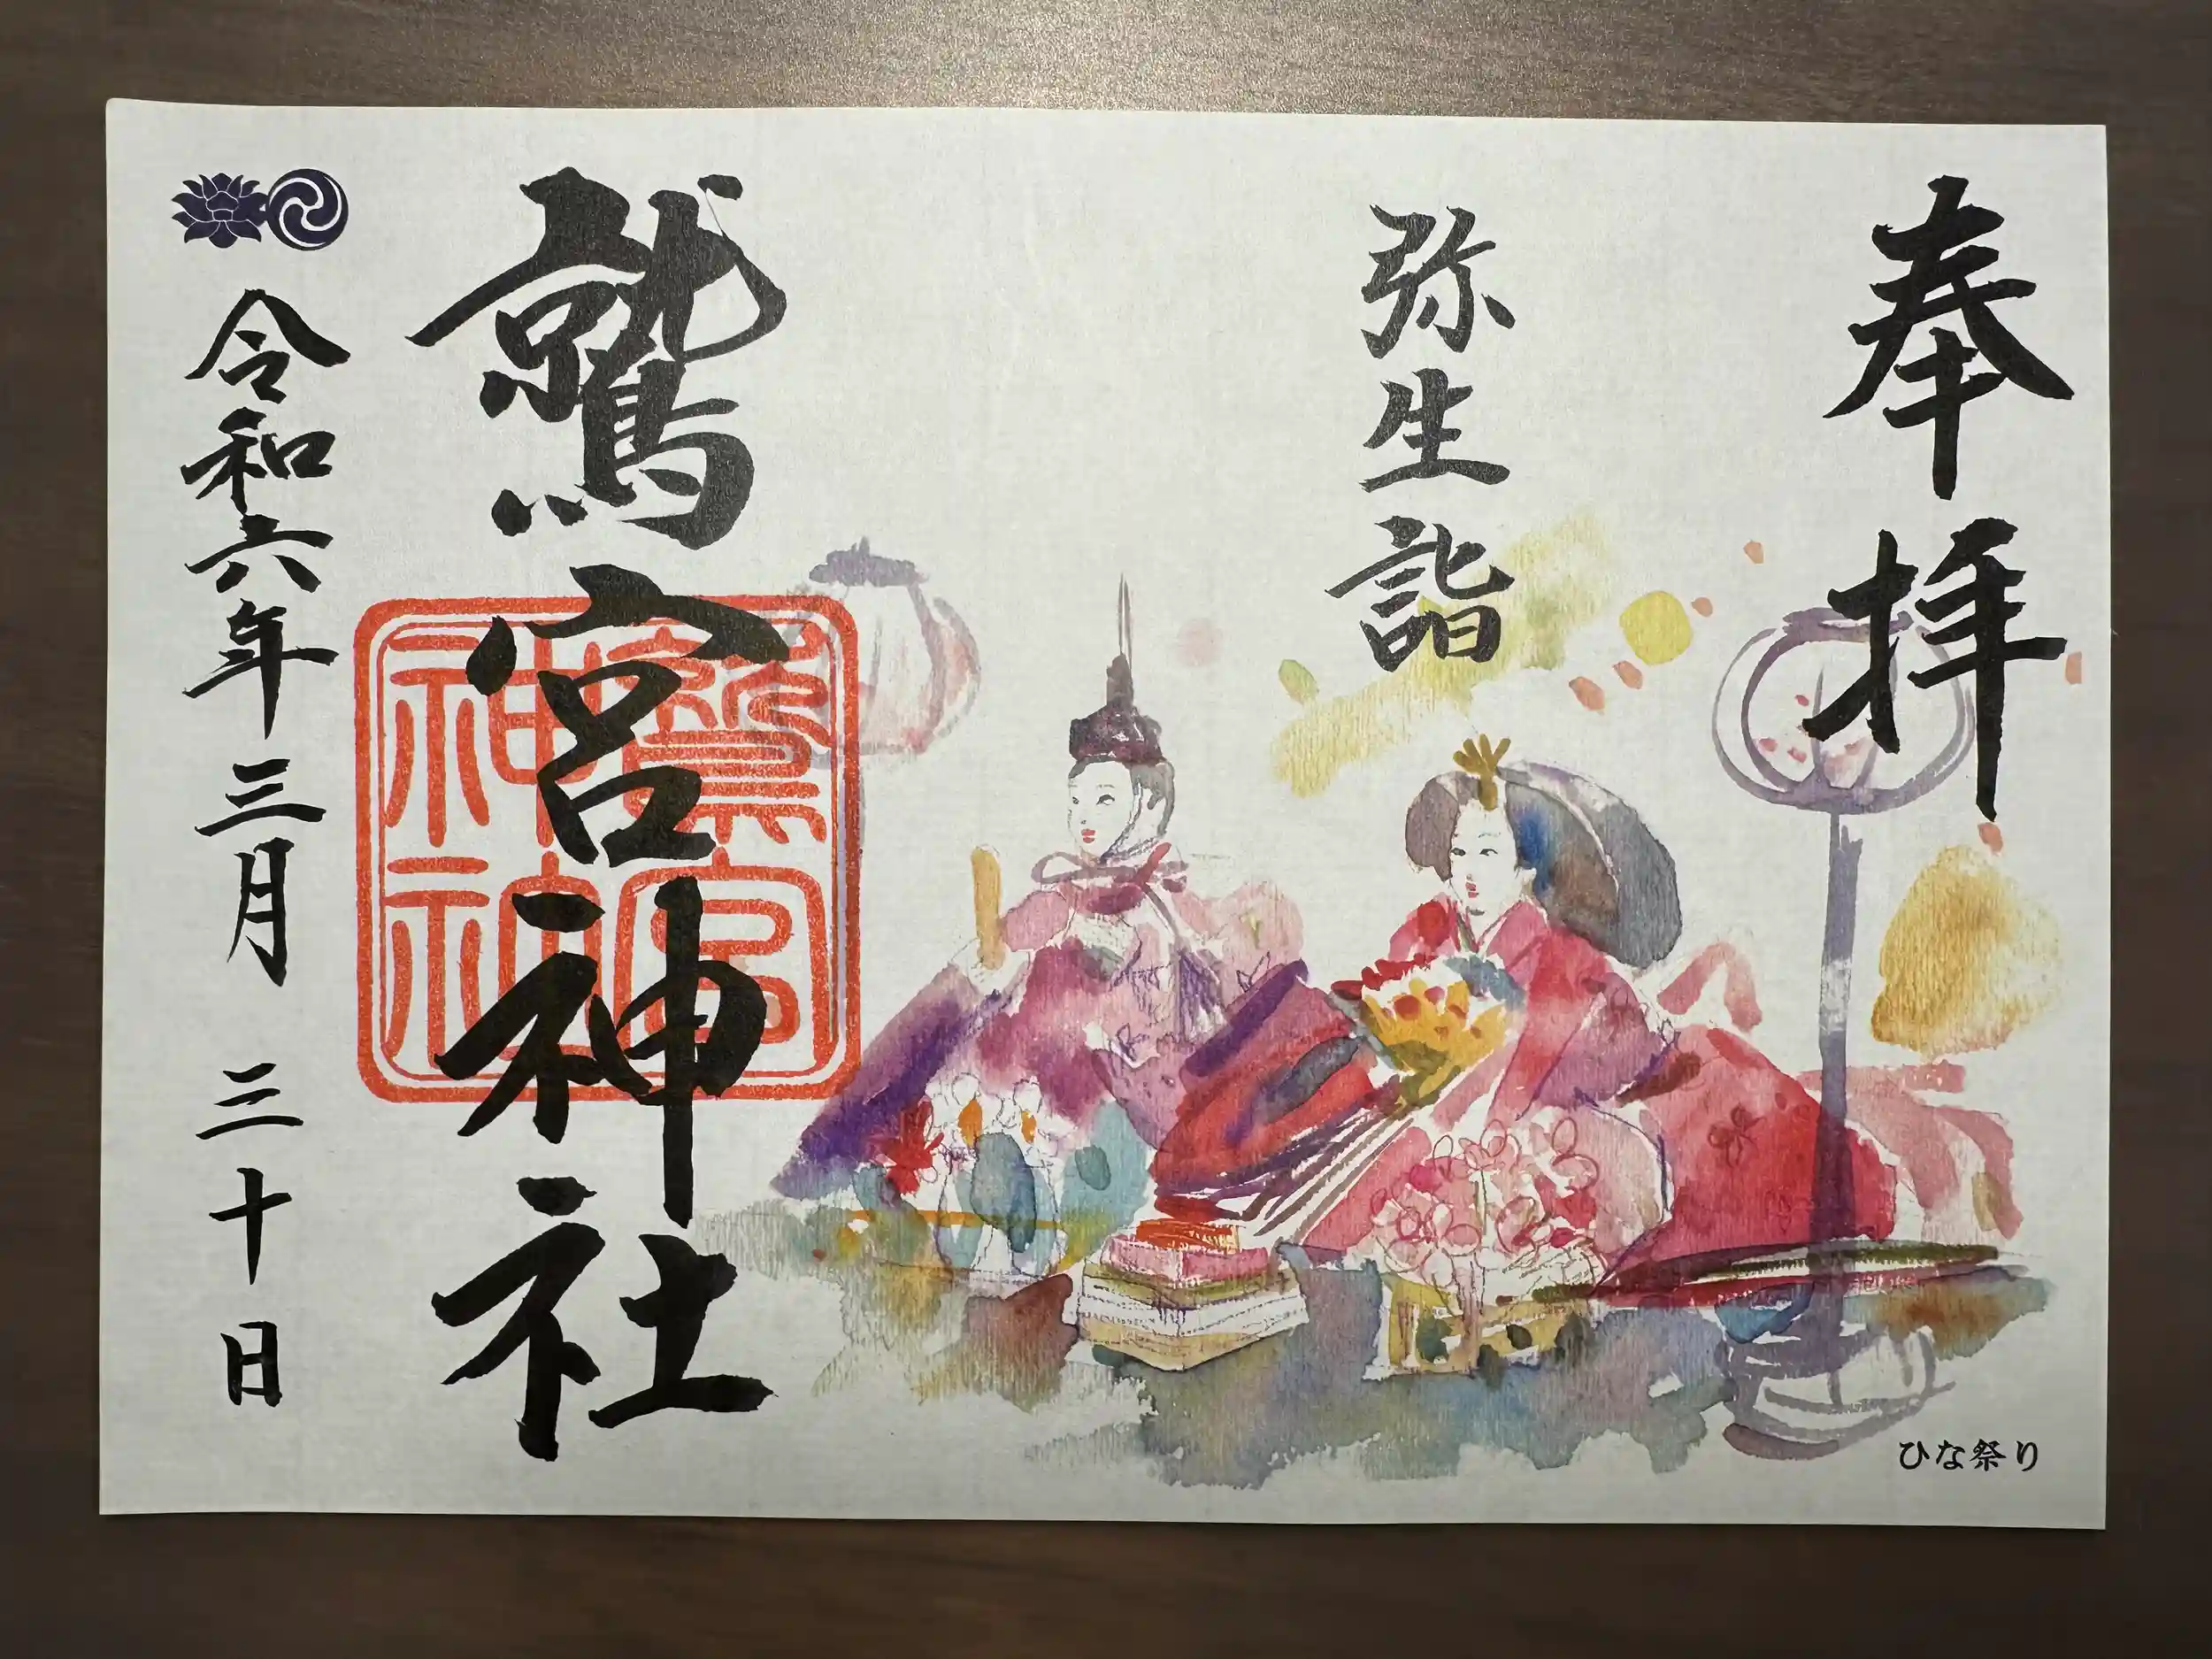 奉拝
弥生詣
鷲宮神社
鷲宮神社
令和六年三月三十日
ひな祭り